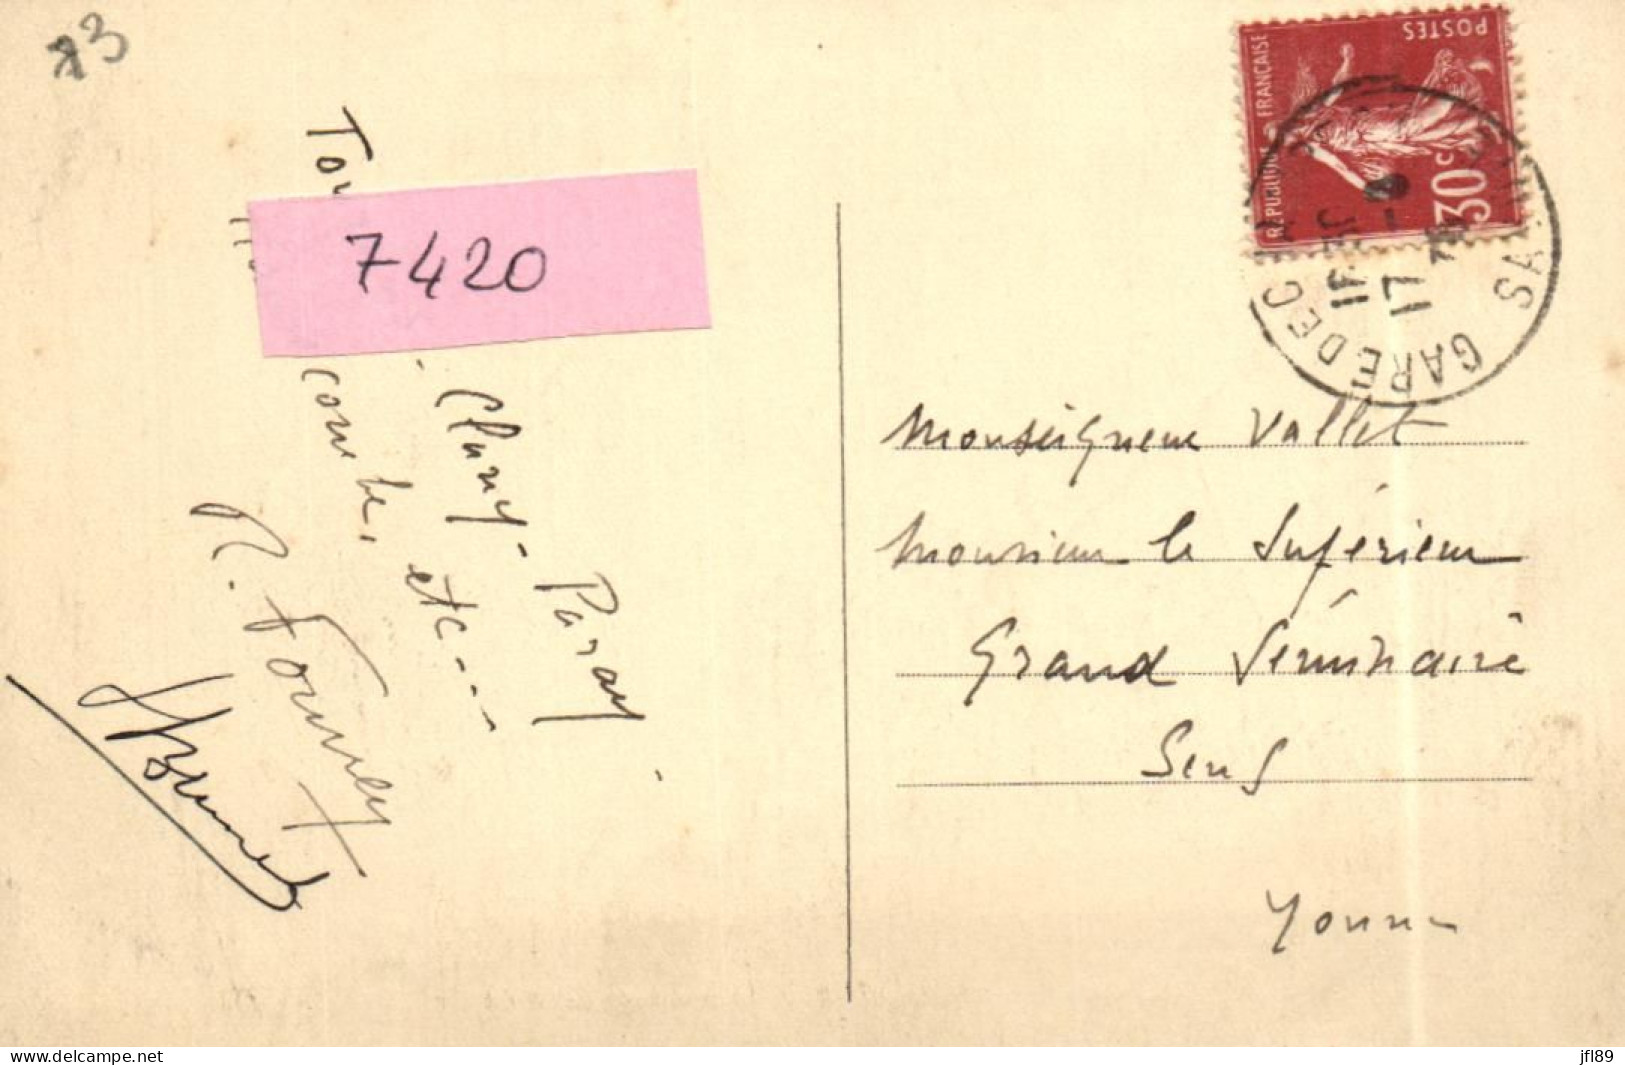 73
7420
Cluny - Paray
combe, etc ---
POSTES
REPUBLIQUE FRANÇAISE
30c
GARE DE
17
Monseigneur Vallet
Monsieur le Supérieur
Grand Séminaire
Sens
Yonne
www.delcampe.net
jfl89